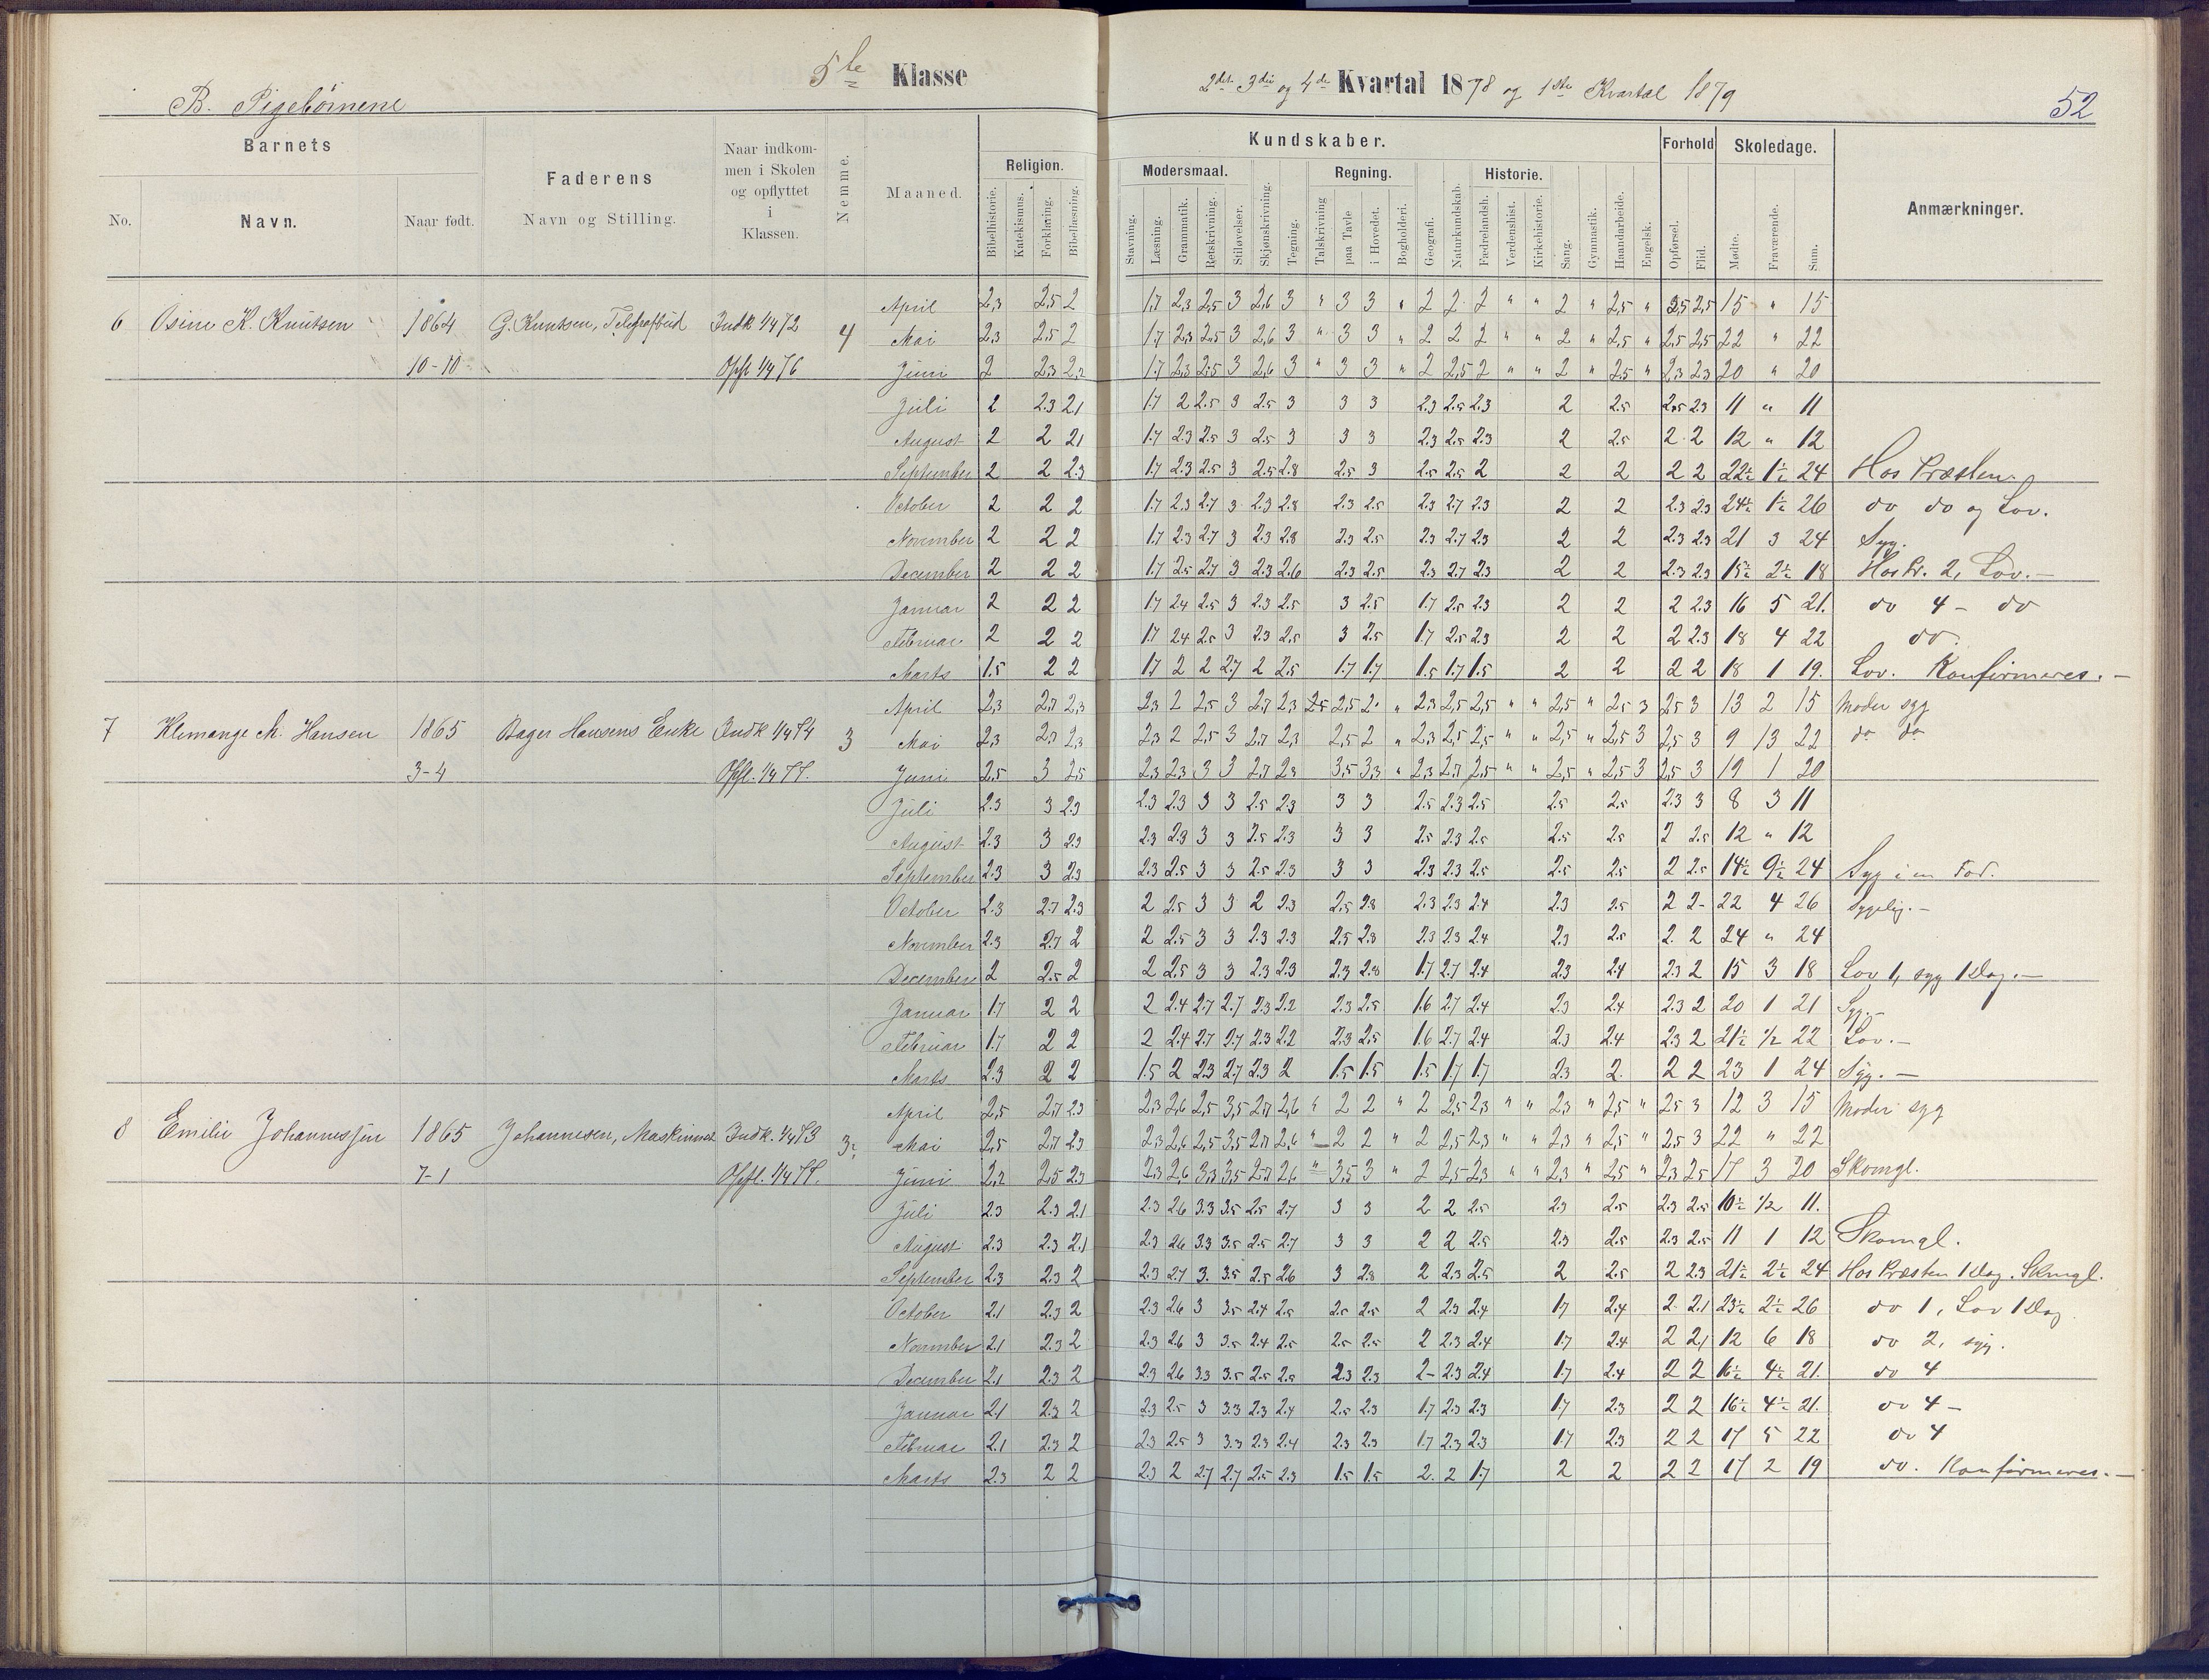 5te Klasse
2det 3die og 4de Kvartal 1878 og 1ste Kvartal 1879
B. Pigebørnene
52
Barnets
No.
Navn.
Naar født.
Faderens
Navn og Stilling.
Naar indkom-
men i Skolen
og opflyttet
i
Klassen.
Nemme.
Maaned.
Religion.
Bibelhistorie.
Katekismus.
Forklaring.
Bibellæsning.
Kundskaber.
Modersmaal.
Stavning.
Læsning.
Grammatik.
Retskrivning.
Stiløvelser.
Skjønskrivning.
Tegning.
Regning.
Talskrivning
paa Tavle
i Hovedet.
Bogholderi.
Geografi.
Naturkundskab.
Historie.
Fædrelandsh.
Verdenshist.
Kirkehistorie.
Sang.
Gymnastik.
Haandarbeide.
Engelsk.
Forhold
Opførsel.
Flid.
Skoledage.
Mødte.
Fraværende.
Sum.
Anmærkninger.
6 Osine K. Knutsen 1864 G. Knutsen, Telegrafbud Indk 1/4 72 4
10-10 Opfl 1/4 76
April 2,3 2,5 2 1,7 2,3 2,5 3 2,6 3 " 3 3 " 2 2 2 " " 2 " 2,5 " 2,5 2,5 15 " 15
Mai 2,3 2,5 2 1,7 2,3 2,5 3 2,6 3 " 3 3 " 2 2 2 " " 2 " 2,5 " 2,5 2,5 22 " 22
Juni 2 2,3 2,2 1,7 2,3 2,5 3 2,6 3 " 3 3 " 2 2,5 2 " " 2 " 2,5 " 2,3 2,3 20 " 20
Juli 2 2.3 2.1 1.7 2 2.5 3 2.5 3 3 3 2.3 2.5 2.3 2 2.5 2.5 2.3 11 " 11
August 2 2 2.1 1.7 2.3 2.5 3 2.5 3 3 3 2.3 2.5 2.3 2 2.5 2 2 12 " 12
September 2 2 2.3 1.7 2.3 2.5 3 2.5 2.8 2.5 3 2.5 2.5 2 2 2 2 2 22½ 1½ 24 Hos Præsten.
October 2 2 2 1.7 2.3 2.7 3 2.3 2.8 2.3 2.5 2.3 2.7 2.3 2 2 2.3 2.3 24½ 1½ 26 do do og Lov.
November 2 2 2 1.7 2.3 2.7 3 2.3 2.8 2.3 2.5 2.3 2.7 2.3 2 2 2.3 2.3 21 3 24 Syg.
December 2 2 2 1.7 2.5 2.7 3 2.3 2.6 2.3 2.5 2.3 2.7 2.3 2 2 2.3 2.3 15½ 2½ 18 Hos Pr. 2, Lov.—
Januar 2 2 2 1.7 2.4 2.5 3 2.3 2.5 3 2.5 1.7 2.5 2.3 2 2 2 2.3 16 5 21. do 4 - do
Februar 2 2 2 1.7 2.4 2.5 3 2.3 2.5 3 2.5 1.7 2.5 2.3 2 2 2 2.3 18 4 22 do.
Marts 1.5 2 2 1.7 2 2 2.7 2 2.5 1.7 1.7 1.5 1.7 1.5 2 2 2 2 18 1 19. Lov. Konfirmeres.—
7 Klemange M. Hansen 1865 Bager Hansens Enke Indk 1/4 74 3
3-4 Opfl. 1/4 77.
April 2,3 2,7 2,3 2,3 2 2,5 3 2,7 2,3 2,5 2,5 2 " 2,3 2,5 2,5 " " 2,5 " 2,5 3 2,5 3 13 2 15 Moder syg
Mai 2,3 2,7 2,3 2,3 2 2,5 3 2,7 2,3 2,5 2 " 2,3 2,5 2,5 " " 2,5 " 2,5 3 2,5 3 9 13 22 do do
Juni 2,5 3 2,5 2,3 2,3 3 3 2,7 2,3 3,5 3,3 " 2,3 2,7 2,5 " " 2,5 " 2,5 3 2,5 3 19 1 20
Juli 2.3 3 2.3 2.3 2.3 3 3 2.5 2.3 3 3 2.5 2.3 2.5 2.5 2.5 2.3 3 8 3 11
August 2.3 3 2.3 2.3 2.3 3 3 2.5 2.3 3 3 2.5 2.3 2.5 2.5 2.5 2 2.5 12 " 12
September 2.3 3 2.3 2.3 2.5 3 3 2.5 2.3 3 3 2.3 2.3 2.5 2.5 2.5 2 2.5 14½ 9½ 24 Syg i en Fod.
October 2.3 2.7 2.3 2 2.5 3 3 2 2.3 2.5 2.8 2.3 2.3 2.4 2.3 2.5 2 2- 22 4 26 Sygelig.—
November 2.3 2.7 2 2 2.5 3 3 2.3 2.3 2.5 2.8 2.3 2.3 2.4 2.3 2.5 2. 2 24 " 24
December 2 2.5 2 2 2.5 3 3 2.3 2.3 2.3 2.8 1.7 2.7 2.4 2.3 2.4 2.3 2 15 3 18 Lov 1, syg 1 Dag.—
Januar 1.7 2 2 2 2.4 2.7 2.7 2.3 2.2 2.3 2.5 1.6 2.7 2.4 2.3 2.4 2.3 2 20 1 21 Syg.—
Februar 1.7 2 2 2 2.4 2.7 2.7 2.3 2.2 2.3 2.5 1.6 2.7 2.4 2.3 2.4 2.3 2 21½ ½ 22 Lov.—
Marts 2.3 2 2 1.5 2 2.3 2.7 2.3 2 1.5 1.5 1.5 1.7 1.7 2.3 2. 2 2 23 1 24 Syg.—
8 Emilie Johannessen 1865 Johannesen, Maskinmest Indk. 1/4 73
7-1 Opfl. 1/4 77.
April 2,5 2,7 2.3 2,3 2,6 2,5 3,5 2,7 2,6 " 2 2 " 2 2,5 2,3 " " 2,3 " 2,5 " 2,5 3 12 3 15 Moder syg
Mai 2,5 2,7 2.3 2,3 2,6 2,5 3,5 2,7 2,6 " 2 2 " 2 2,5 2,3 " " 2,3 " 2,5 " 2,5 3 22 " 22
Juni 2,2 2,5 2.3 2,3 2,6 3,3 3,5 2,7 2,6 " 3,5 3 " 2 2,5 2,3 " " 2,3 " 2,5 " 2,3 2,5 17 3 20 Skomgl.
Juli 2.3 2.3 2.1 2.3 2.6 3.3 3.5 2.5 2.7 3 3 2 2 2.5 2.3 2.5 2.3 2.5 10½ ½ 11.
August 2.3 2.3 2.1 2.3 2.6 3.3 3.5 2.5 2.7 3 3 2 2 2.5 2.3 2.5 2.3 2.5 11 1 12 Skomgl.
September 2.3 2.3 2 2.3 2.7 3. 3.5 2.5 2.6 3 2.8 2 2.3 2.5 2 2.5 2 2.3 21½ 2½ 24 Hos Præsten 1 Dag. Skmgl.
October 2.1 2.3 2 2.3 2.6 3 3.5 2.4 2.5 2.5 2.5 2 2.3 2.4 1.7 2.4 2 2.1 23½ 2½ 26 do 1, Lov 1 Dag
November 2.1 2.3 2 2.3 2.6 3 3.5 2.4 2.5 2.5 2.5 2 2.3 2.4 1.7 2.4 2 2.1 12 6 18 do 2, syg.
December 2.1 2.3 2 2.3 2.6 3.3 3.5 2.5 2.5 2.3 2.3 2- 2.3 2.4 1.7 2.4 2 2 16½ 4½ 21. do 4
Januar 2.1 2.3 2 2.3 2.5 3 3.3 2.3 2.4 2.5 2.3 1.7 2.3 2.3 1.7 2.3 2 2 16½ 4½ 21. do 4 -
Februar 2.1 2.3 2 2.3 2.5 3 3.3 2.3 2.4 2.3 2.3 1.7 2.3 2.3 1.7 2.3 2 2 17 5 22 do 4
Marts 2.3 2 2 2.3 2 2.7 2.7 2.5 2.3 1.5 1.5 2. 2 1.7 2 2 2 2 17 2 19 do. Konfirmeres.—